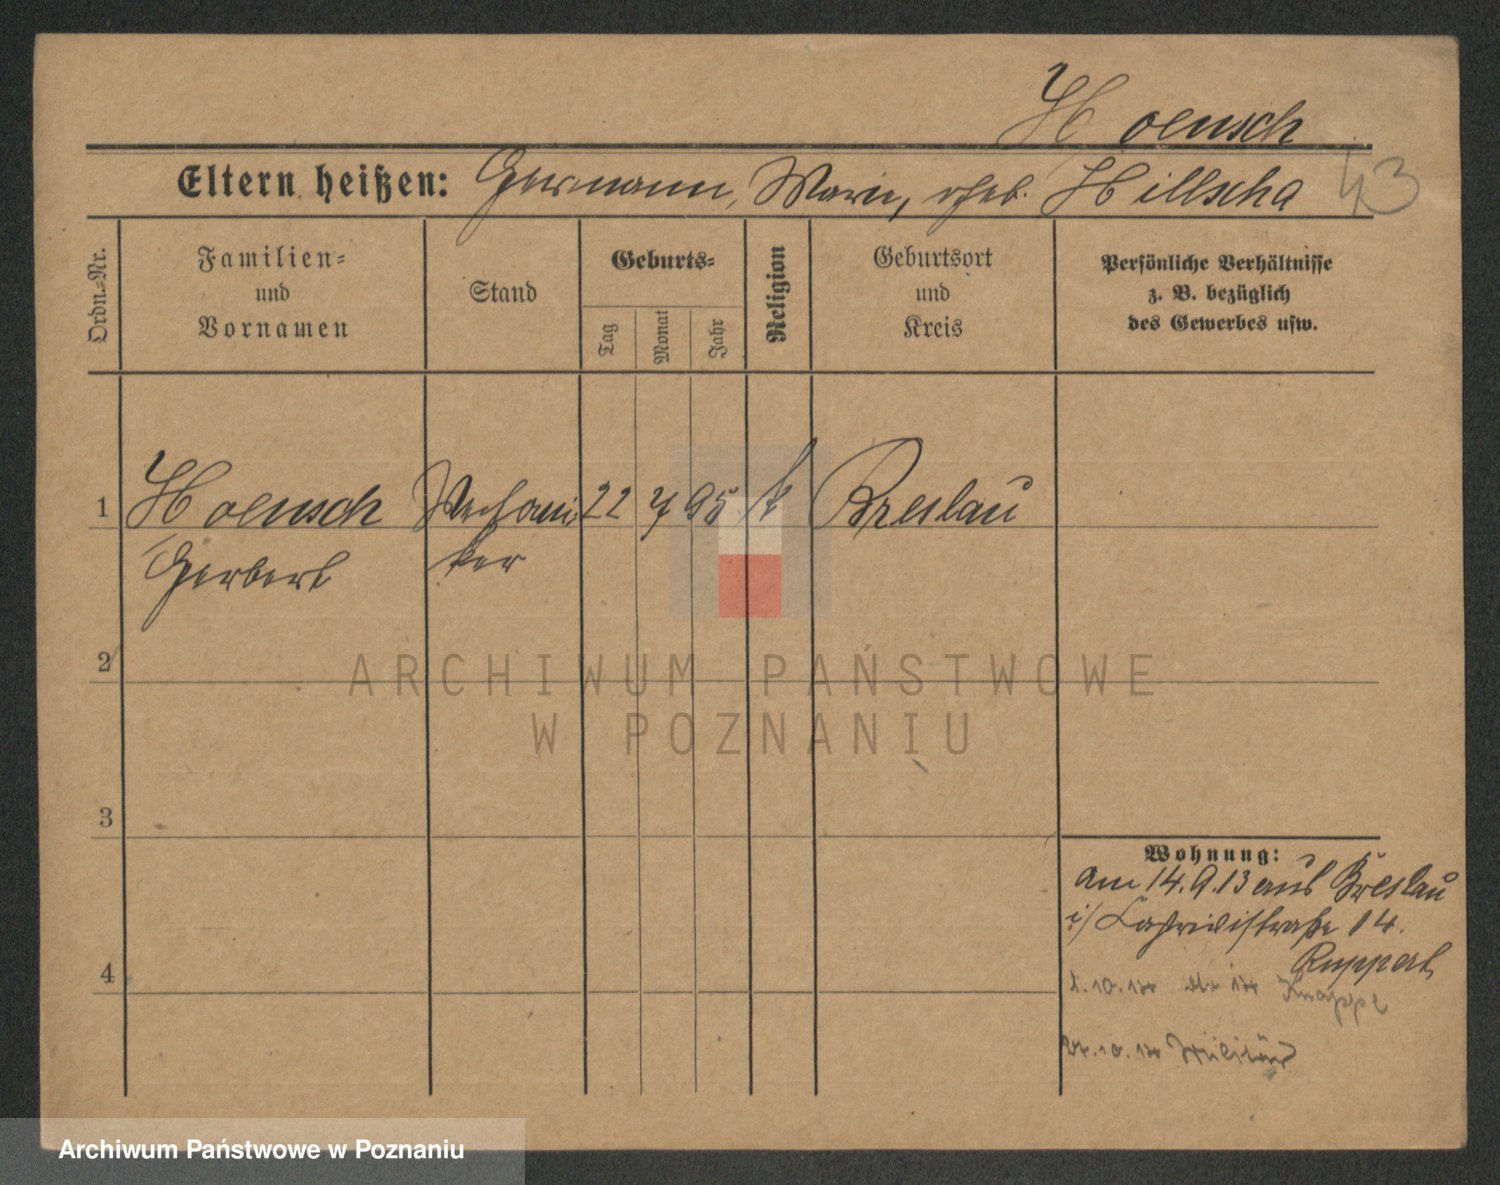 Hoensch
Eltern heißen: Hermann, Marie, geb. Hillscha
43
Ordn.-Nr.
Familien-
und
Vornamen
Stand
Geburts-
Tag
Monat
Jahr
Religion
Geburtsort
und
Kreis
Persönliche Verhältnisse
z. B. bezüglich
des Gewerbes usw.
1 Hoensch Mechani 22 7 95 k Breslau
Herbert ker
2
ARCHIWUM PAŃSTWOWE
W POZNANIU
3
Wohnung:
am 14.9.13 aus Breslau
i/ straße 14.
Ruppert
4
1.10.14 14 Knappe
10.14 Militär
Archiwum Państwowe w Poznaniu